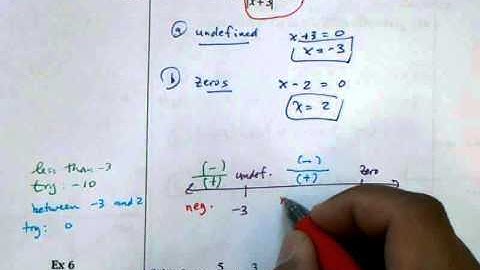 |x+3|
(a) undefined x+3=0
x=-3
(b) zeros x-2=0
x=2
less than -3
try: -10
between -3 and 2
try: 0
(-)/(+) undef. (-)/(+) zero
neg. -3
Ex 6